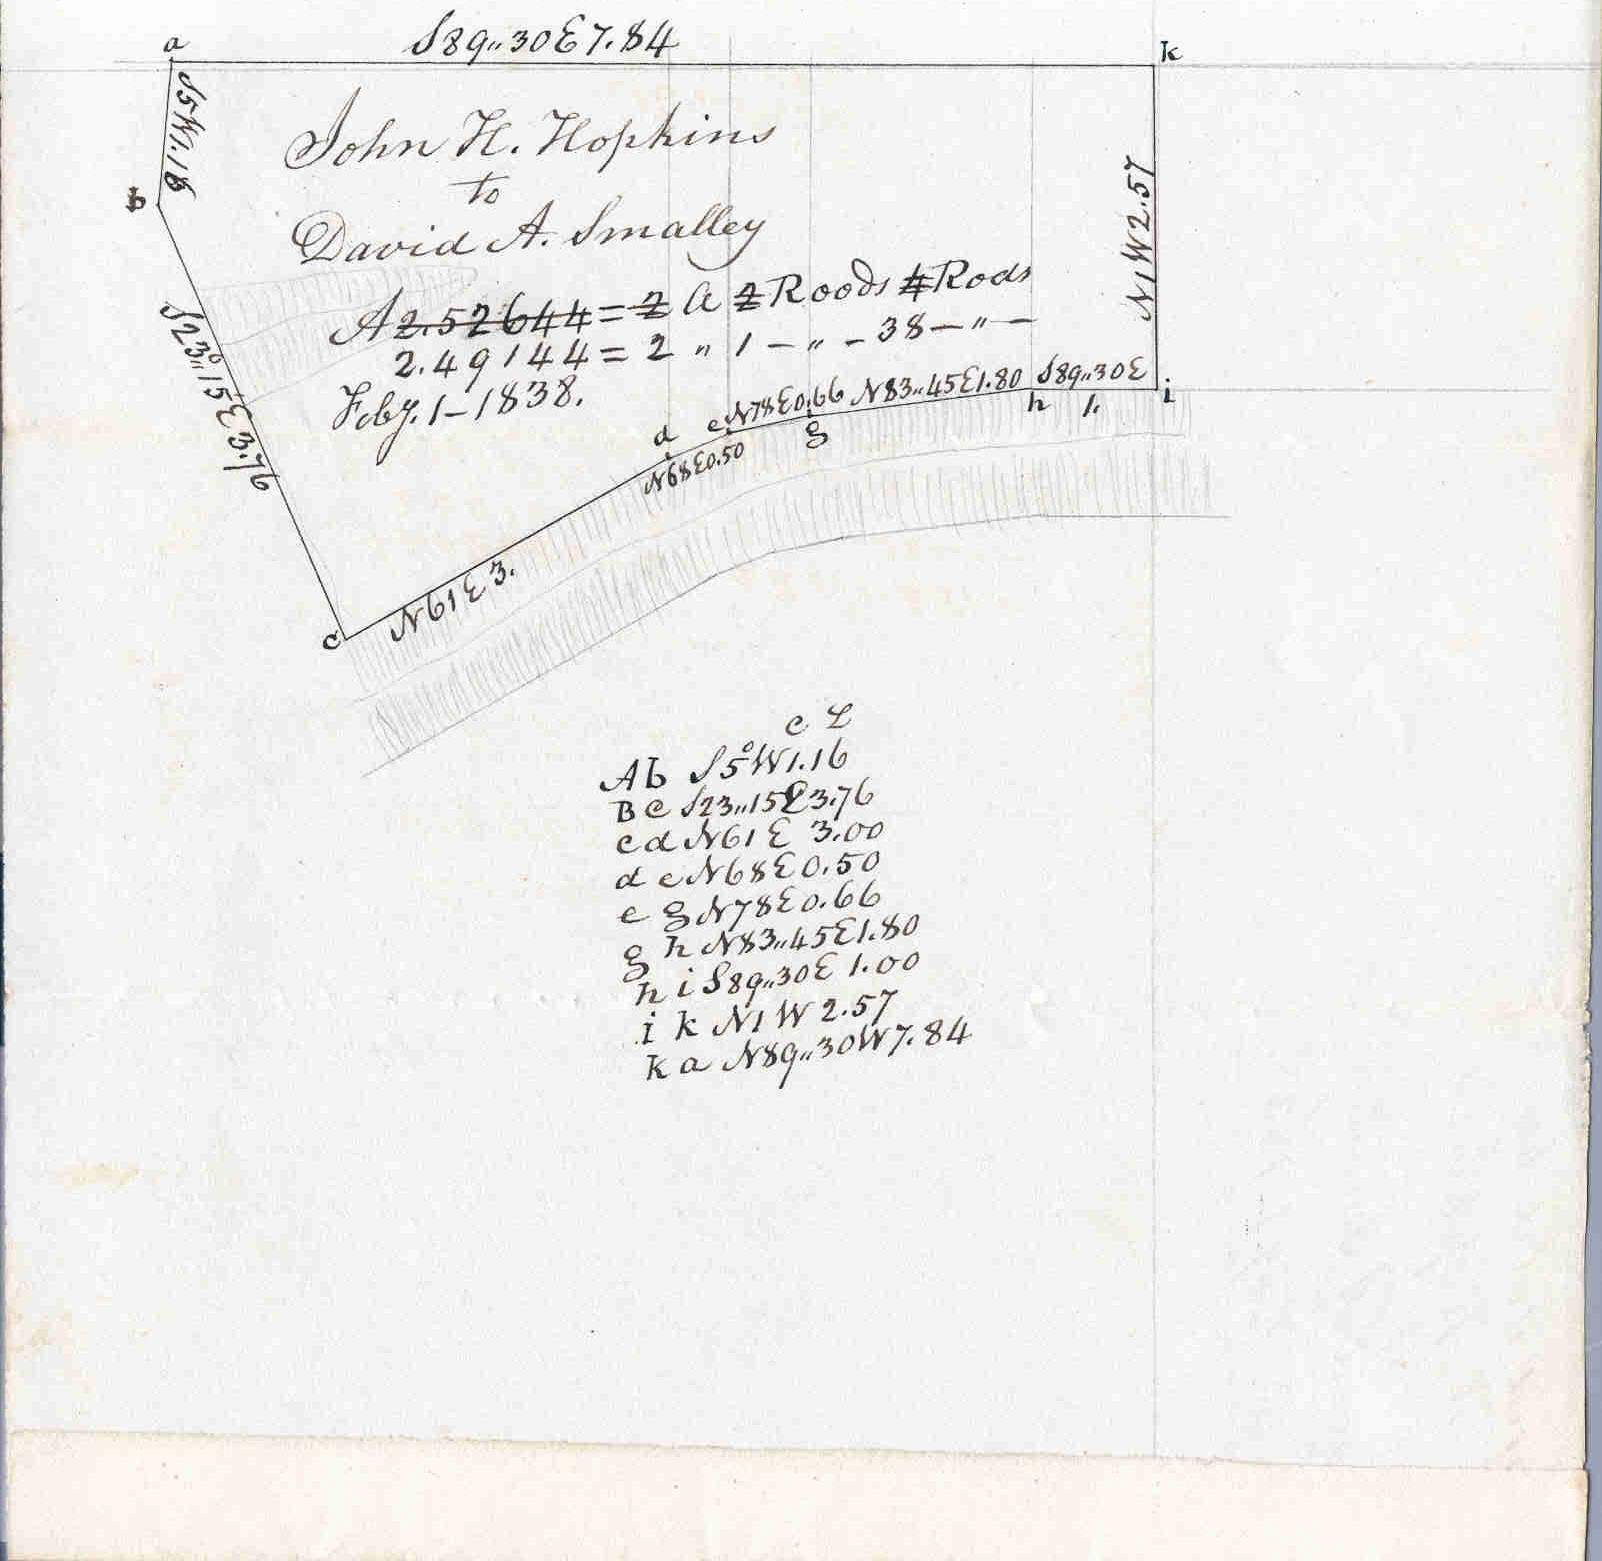 a
S89,,30E7.84
k
S5W1.18
John H. Hopkins
to
David A. Smalley
N1W2.57
b
A 2.52644 = 2 A 2 Roods 4 Rods
2.49144 = 2 " 1 — " — 38 — " —
Feby. 1 – 1838.
S23°,,15E3.76
d e N78E0.66 N83,,45E1.80 S89,,30E
g h 1. i
N68E0.50
c N61E3.
c L
Ab S5°W1.16
Bc S23,,15E3.76
cd N61E 3.00
d e N68E0.50
e g N78E0.66
g h N83,,45E1.80
h i S89,,30E 1.00
i k N1W 2.57
k a N89,,30W7.84